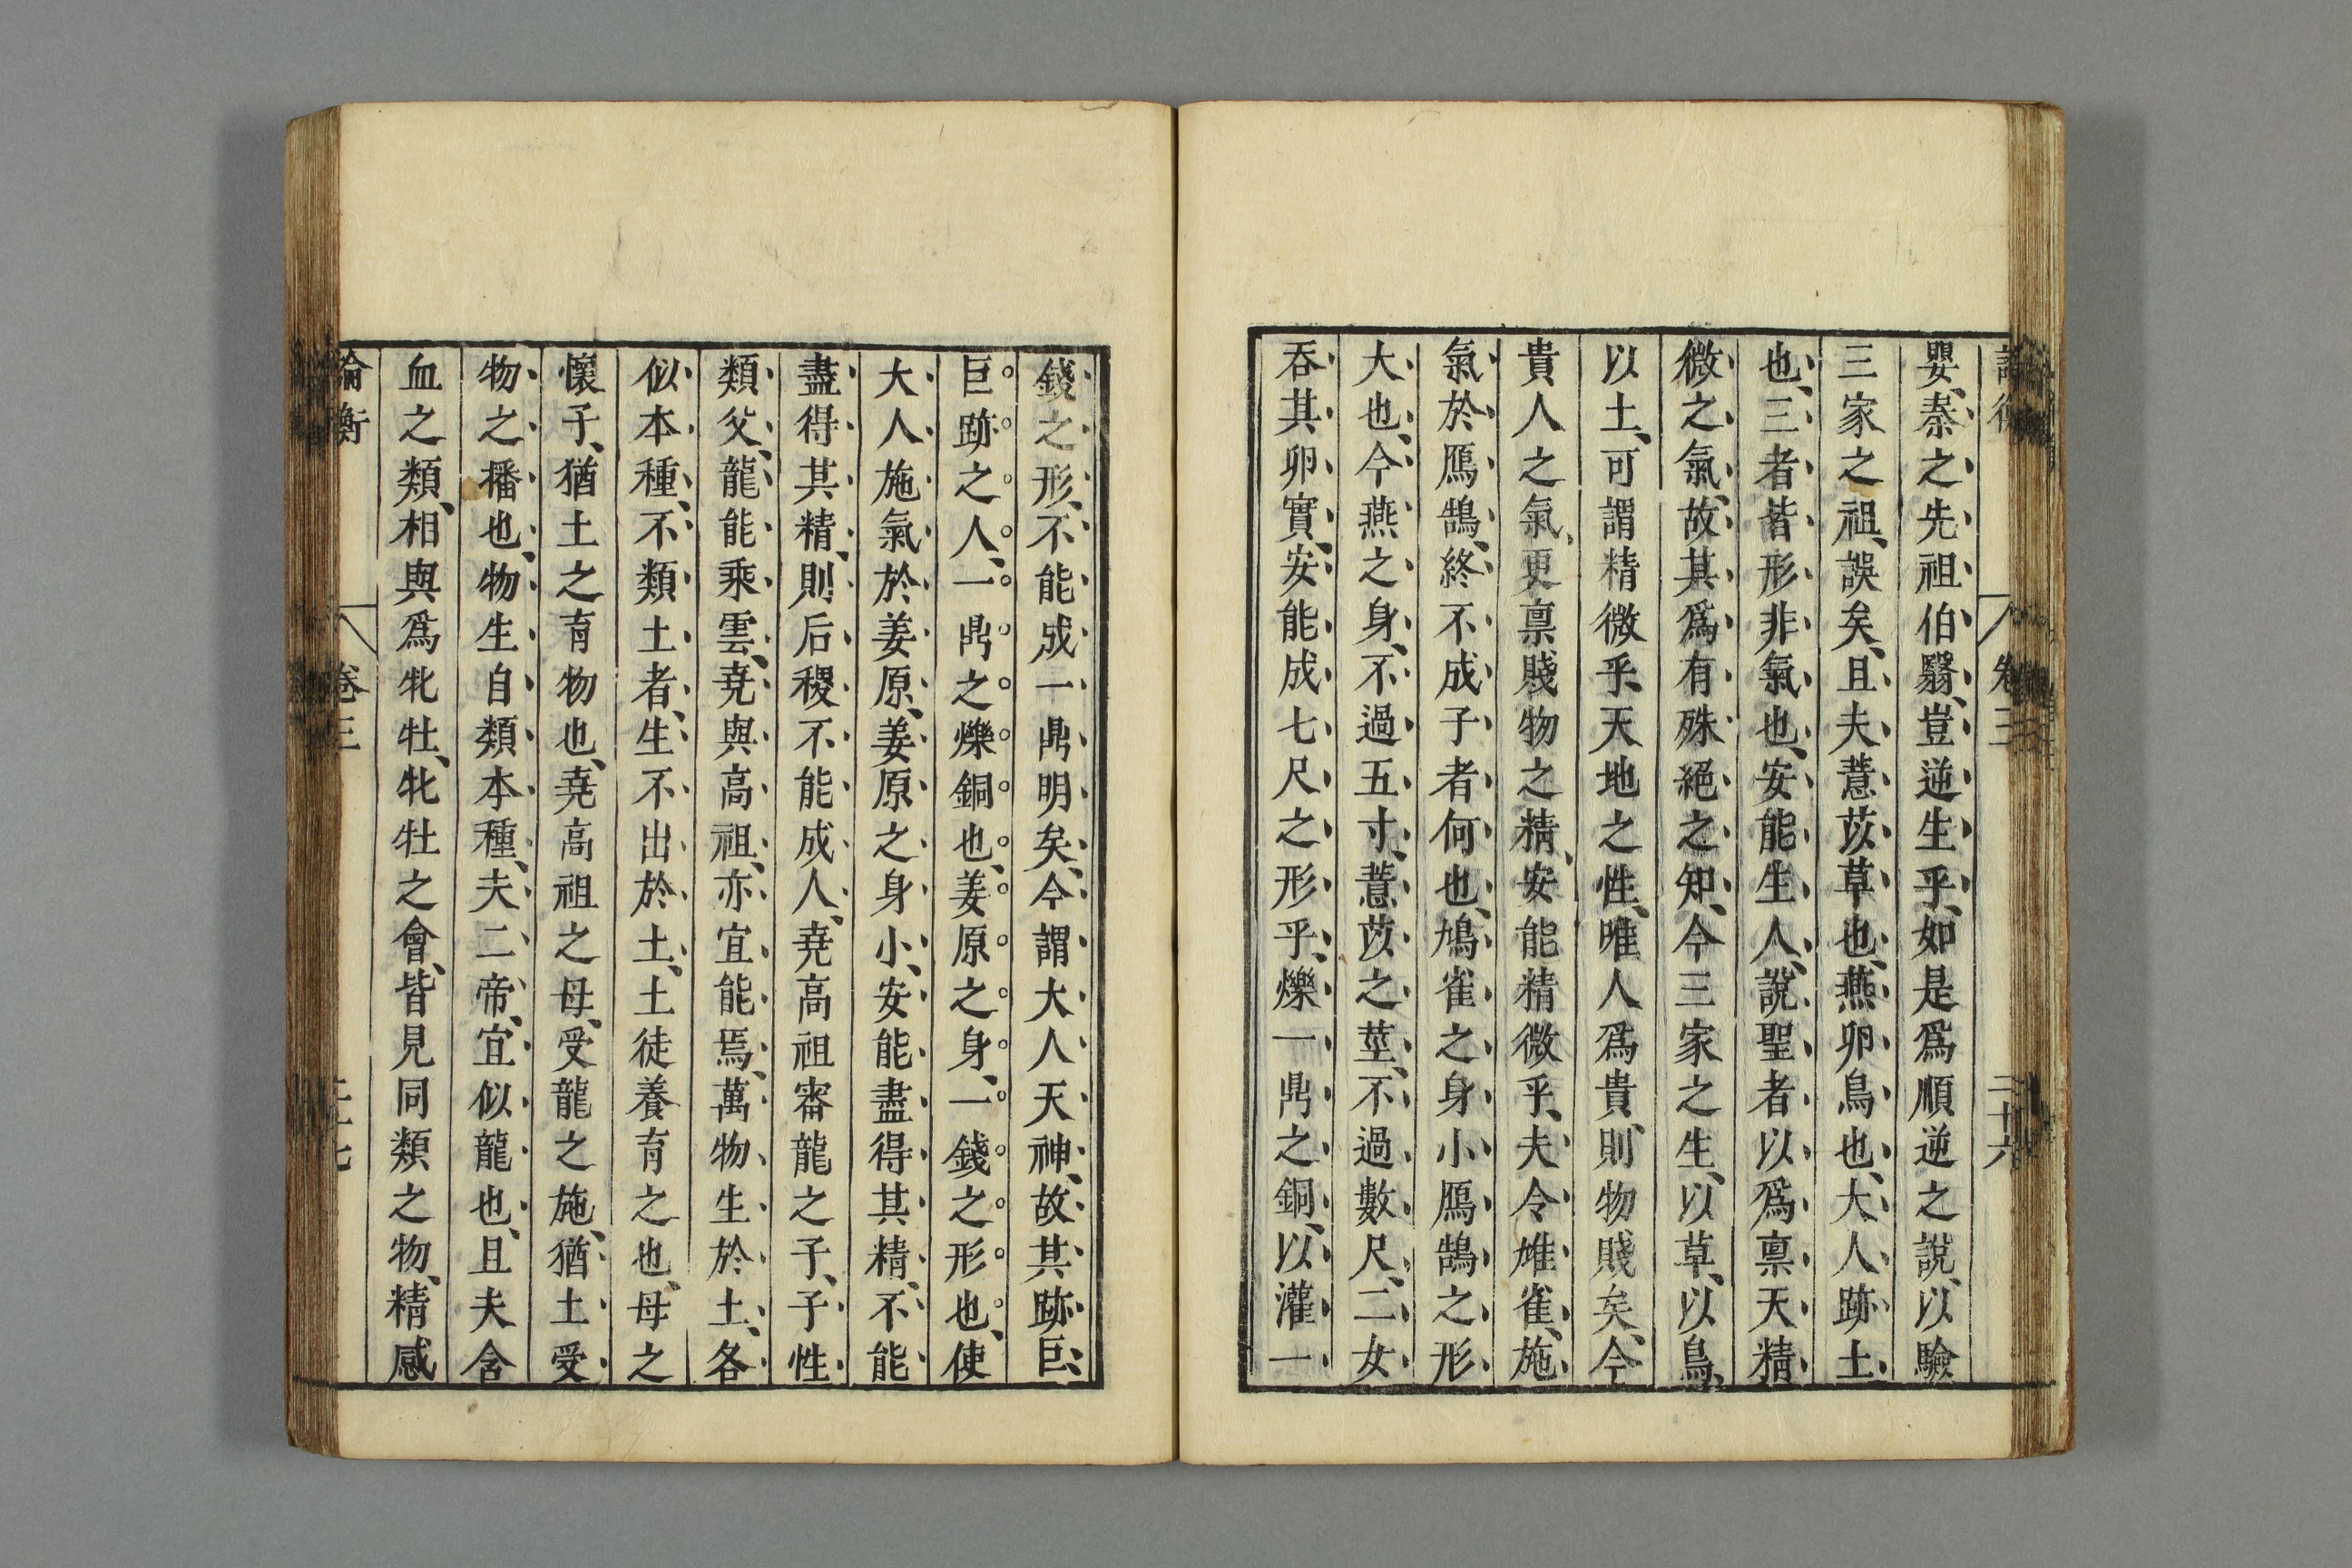 卷三
二十六
嬰、秦之先祖伯翳、豈逆生乎、如是爲順逆之說、以驗
三家之祖、誤矣、且夫薏苡草也、燕卵鳥也、大人跡土
也、三者皆形非氣也、安能生人、說聖者以爲禀天精
微之氣、故其爲有殊絕之知、今三家之生、以草、以鳥、
以土、可謂精微乎、天地之性、唯人爲貴、則物賤矣、今
貴人之氣、更禀賤物之精、安能精微乎、夫令雄雀、施
氣於鴈鵠、終不成子者何也、鳩雀之身小鴈鵠之形
大也、今燕之身、不過五寸、薏苡之莖、不過數尺、二女
吞其卵實、安能成七尺之形乎、爍一鼎之銅、以灌一
錢之形、不能成一鼎明矣、今謂大人天神、故其跡巨、
巨跡之人、一鼎之爍銅也、姜原之身、一錢之形也、使
大人施氣於姜原、姜原之身小、安能盡得其精、不能
盡得其精、則后稷不能成人、堯高祖審龍之子、子性
類父、龍能乘雲、堯與高祖、亦宜能焉、萬物生於土、各
似本種、不類土者、生不出於土、土徒養育之也、母之
懷子、猶土之育物也、堯高祖之母、受龍之施、猶土受
物之播也、物生自類本種、夫二帝、宜似龍也、且夫含
血之類、相與爲牝牡、牝牡之會、皆見同類之物、精感
論衡
卷三